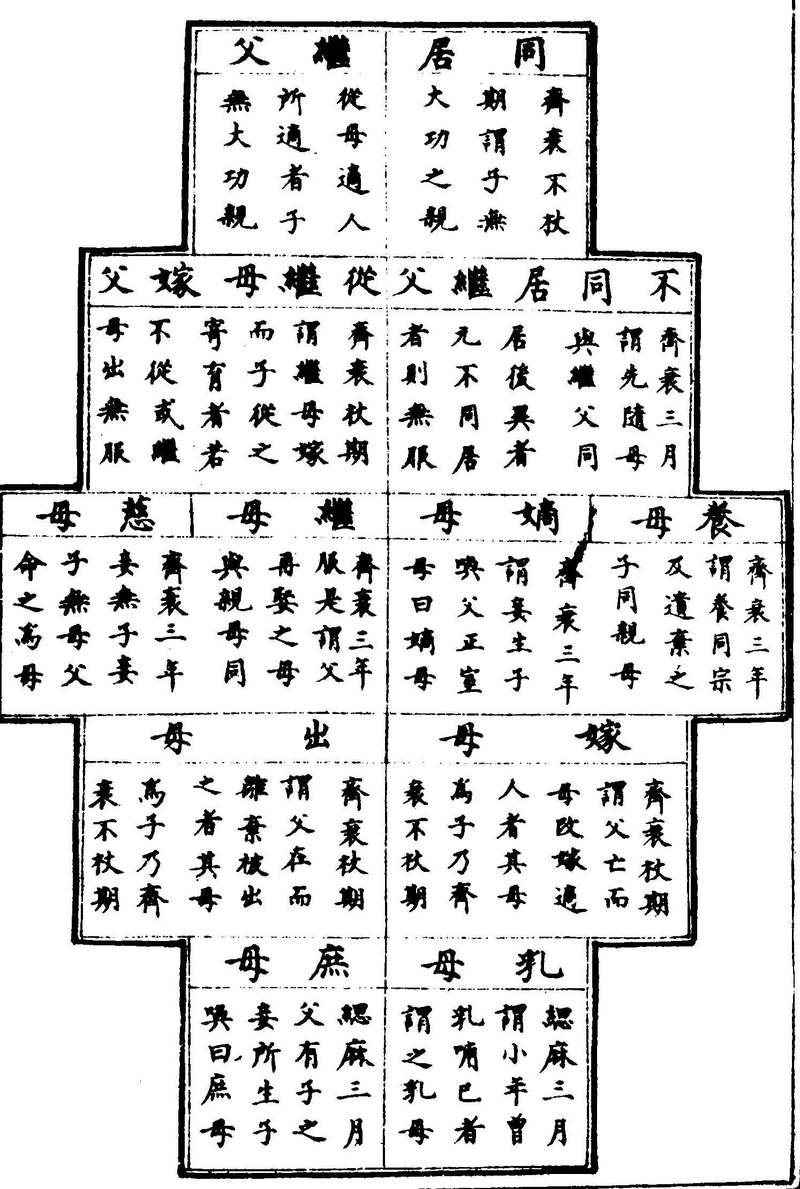 同居繼父
齊衰不杖
期謂子無
大功之親
從母適人
所適者子
無大功親
不同居繼父
齊衰三月
謂先隨母
與繼父同
居後異者
元不同居
者則無服
從繼母嫁父
齊衰杖期
謂繼母嫁
而子從之
寄育者若
不從或繼
母出無服
養母
齊衰三年
謂養同宗
及遺棄之
子同親母
嫡母
齊衰三年
謂妾生子
喚父正室
母曰嫡母
繼母
齊衰三年
服是謂父
再娶之母
與親母同
慈母
齊衰三年
妾無子妾
子無母父
命之為母
嫁母
齊衰杖期
謂父亡而
母改嫁適
人者其母
為子乃齊
衰不杖期
出母
齊衰杖期
謂父在而
離棄被出
之者其母
為子乃齊
衰不杖期
乳母
緦麻三月
謂小年曾
乳哺己者
謂之乳母
庶母
緦麻三月
父有子之
妾所生子
喚曰庶母